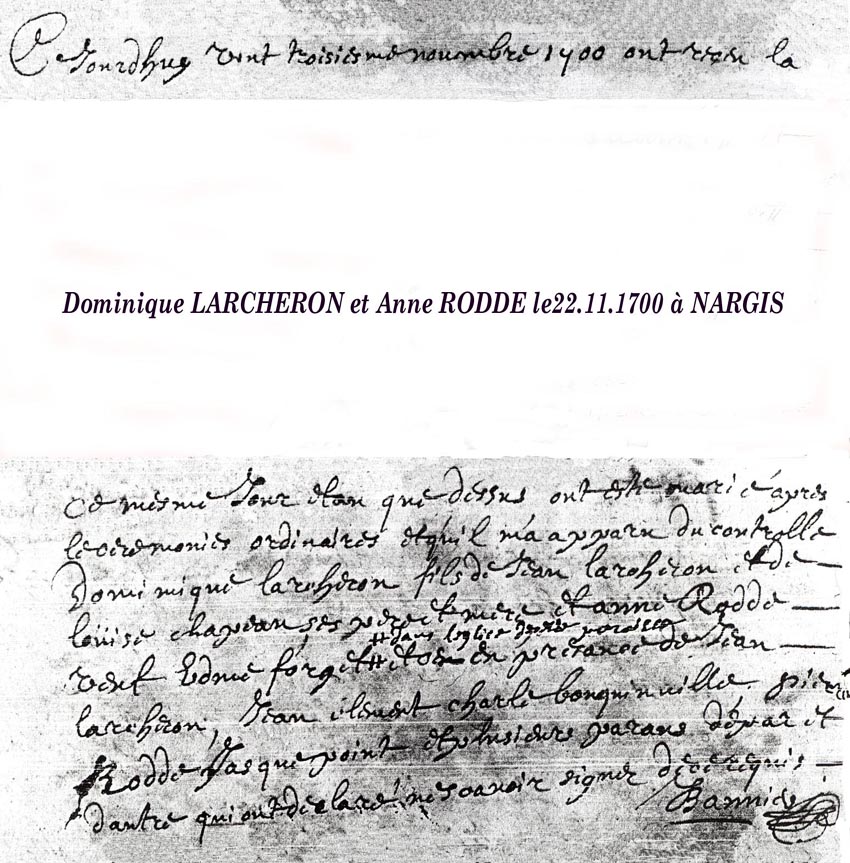 Ce Jourdhuy vint troisiesme nouembre 1700 ont receu la
Dominique LARCHERON et Anne RODDE le22.11.1700 à NARGIS
Ce mesme Jour et an que dessus ont este mari é apres
le ceremonies ordinaires et quil m'a apparu du controlle
Dominique larcheron fils de Jean larcheron et de
louise chapeau ses pere et mere et anne Rodde
# dans leglise
veuf Edme forget # et en presance de Jean
larcheron, Jean clement charle bonquinuille pierre
Rodde Jasque point et plusieurs parans depar et
dautre qui ont declaré ne scauoir signer de ce requis
Bannier